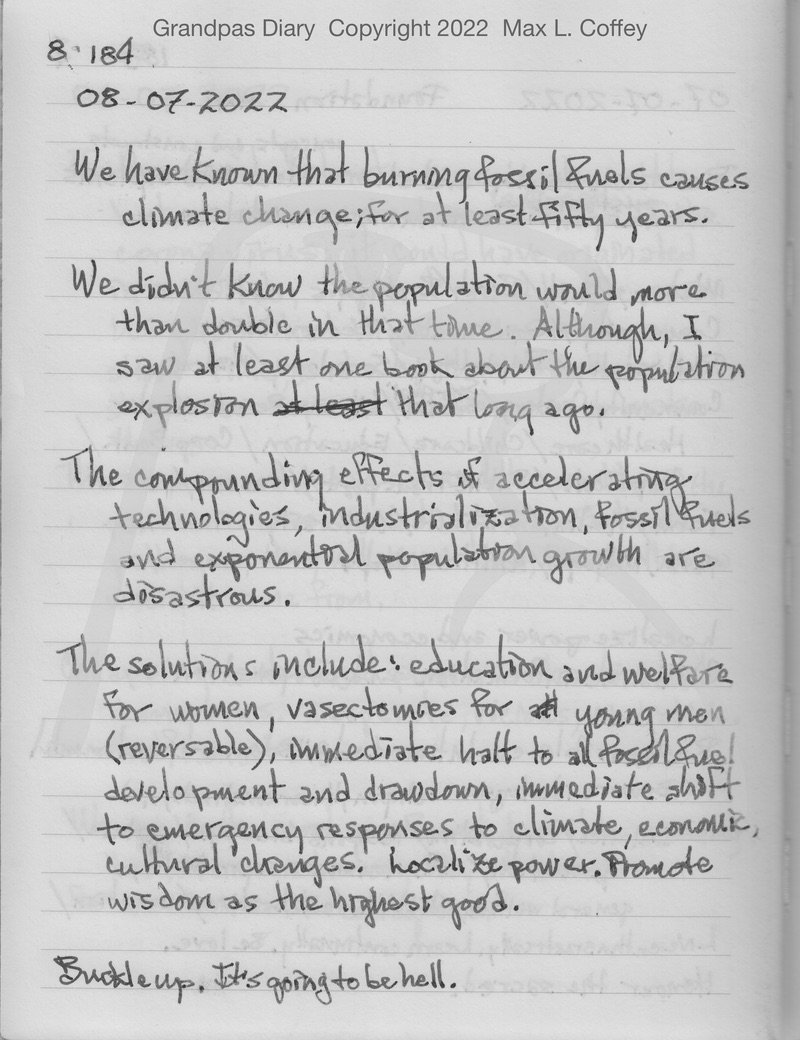 Grandpas Diary Copyright 2022 Max L. Coffey
8.184
08-07-2022
We have known that burning fossil fuels causes
climate change; for at least fifty years.
We didn't know the population would more
than double in that time. Although, I
saw at least one book about the population
explosion at least that long ago.
The compounding effects of accelerating
technologies, industrialization, fossil fuels
and exponential population growth are
disastrous.
The solutions include: education and welfare
for women, vasectomies for all young men
(reversable), immediate halt to all fossil fuel
development and drawdown, immediate shift
to emergency responses to climate, economic,
cultural changes. Localize power. Promote
wisdom as the highest good.
Buckle up. It's going to be hell.